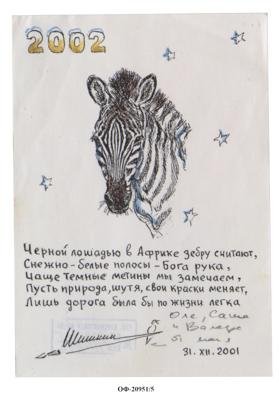 2002
Черной лошадью в Африке зебру считают,
Снежно-белые полосы - Бога рука,
Чаще темные метины мы замечаем,
Пусть природа, шутя, свои краски меняет,
Лишь дорога была бы по жизни легка
Оле, Саше
и
31. XII. 2001
ОФ-20951/5